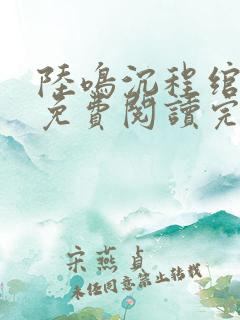 陸鳴沉程綰
免費閱讀完
宋燕貞
未經同意禁止轉載